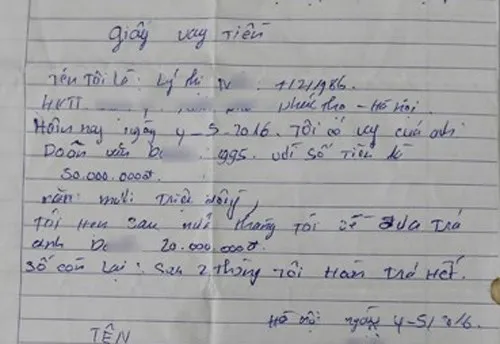 Giấy vay tiền
Tên tôi là: Lý thị N : +121986.
HKTT Phúc thọ - Hà Nội
Hôm nay ngày 4-5-2016. Tôi có vay của anh
Doãn văn D 1995. với số tiền là
50.000.000đ.
năm mươi triệu đồng
Tôi hẹn sau một tháng tôi sẽ đưa trả
anh D 20.000.000đ.
Số còn lại: sau 2 tháng tôi Hoàn Trả Hết.
Hà nội ngày 4-5/2016.
TÊN